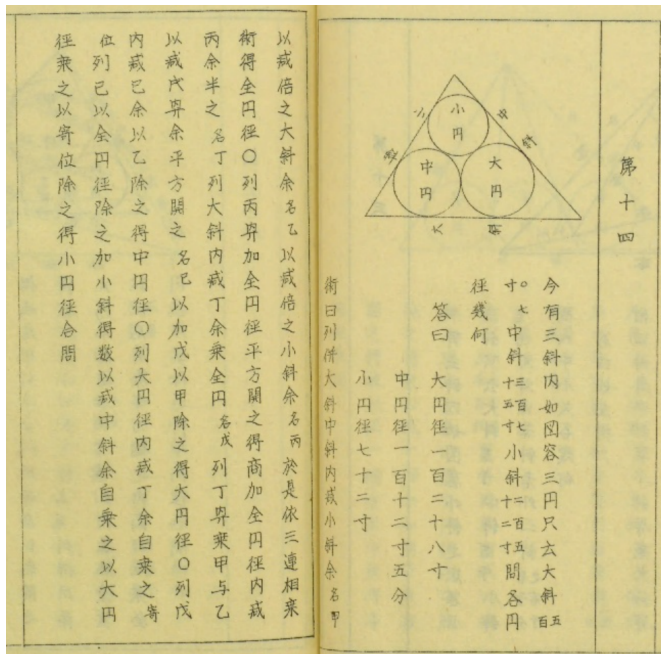 第十四
小円
中円
大円
小斜
中斜
大斜
今有三斜内如図容三円只云大斜五百
〇七寸中斜三百七十五寸小斜二百五十二寸問各円
径幾何
答曰 大円径一百二十八寸
中円径一百十二寸五分
小円径七十二寸
術曰列併大斜中斜内减小斜余名甲
以减倍之大斜余名乙以减倍之小斜余名丙於是依三連相乗
術得全円径〇列丙冪加全円径平方開之得商加全円径内减
丙余半之名丁列大斜内减丁余乗全円名戊列丁冪乗甲与乙
以减戊冪余平方開之名己以加戊以甲除之得大円径〇列戊
内减己余以乙除之得中円径〇列大円径内减丁余自乗之寄
位列己以全円径除之加小斜得数以减中斜余自乗之以大円
径乗之以寄位除之得小円径合問